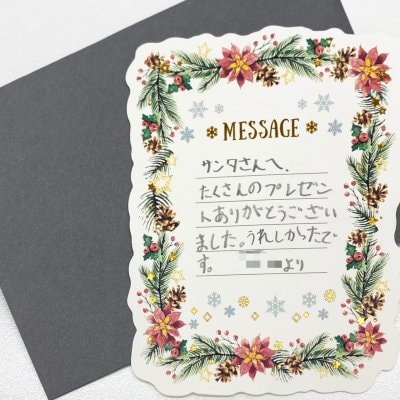 MESSAGE
サンタさんへ、
たくさんのプレゼン
トありがとうござい
ました。うれしかったで
す。 より